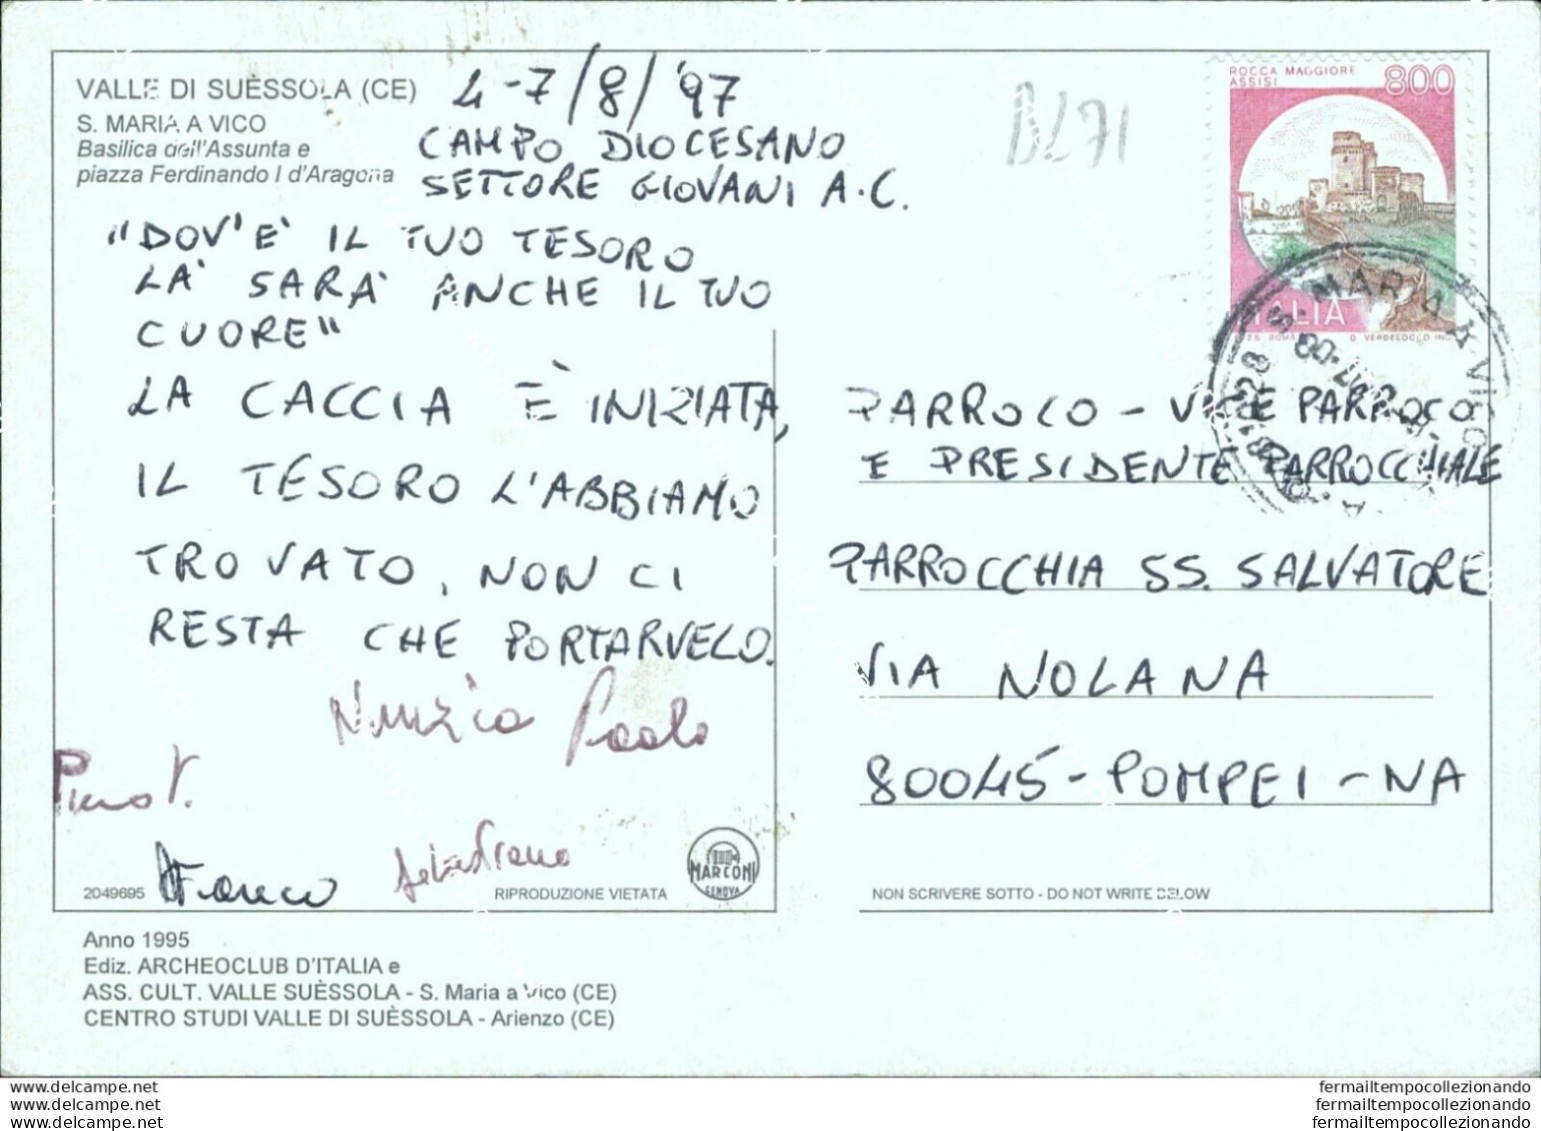 VALLE DI SUÈSSOLA (CE)
S. MARIA A VICO
Basilica dell'Assunta e
piazza Ferdinando I d'Aragona
4-7/8/'97
CAMPO DIOCESANO
SETTORE GIOVANI A.C.
"DOV'È IL TUO TESORO
LÀ SARÀ ANCHE IL TUO
CUORE"
LA CACCIA È INIZIATA,
IL TESORO L'ABBIAMO
TROVATO, NON CI
RESTA CHE PORTARVELO.
Nunzio Paolo
Franco
Sebastiano
2049695
RIPRODUZIONE VIETATA
MARCONI
GENOVA
Anno 1995
Ediz. ARCHEOCLUB D'ITALIA e
ASS. CULT. VALLE SUÈSSOLA - S. Maria a Vico (CE)
CENTRO STUDI VALLE DI SUÈSSOLA - Arienzo (CE)
BL71
ROCCA MAGGIORE
ASSISI
800
ITALIA
S. MARIA A VICO
PARROCO - VICE PARROCO
E PRESIDENTE PARROCCHIALE
PARROCCHIA SS. SALVATORE
VIA NOLANA
80045 - POMPEI - NA
NON SCRIVERE SOTTO - DO NOT WRITE BELOW
www.delcampe.net
www.delcampe.net
www.delcampe.net
fermailtempocollezionando
fermailtempocollezionando
fermailtempocollezionando